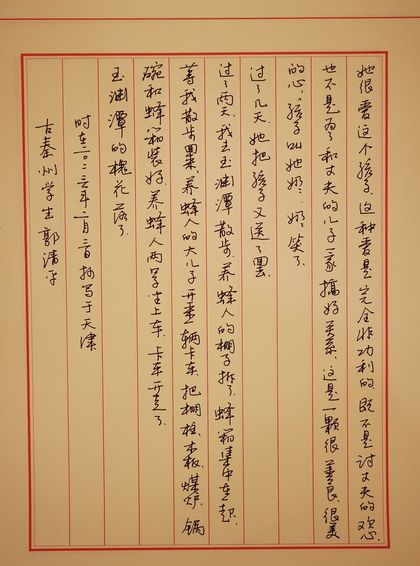 她很爱这个孩子。这种爱是完全非功利的，既不是讨丈夫的欢心，
也不是为了和丈夫的儿子一家搞好关系。这是一颗很善良、很美
的心。孩子叫她奶奶，奶奶笑了。
过了几天，她把孩子又送了回去。
过了两天，我去玉渊潭散步，养蜂人的棚子拆了，蜂箱集中在一起。
等我散步回来，养蜂人的大儿子开来一辆卡车，把棚柱、木板、煤炉、锅
碗和蜂箱装好，养蜂人两口子坐上车，卡车开走了。
玉渊潭的槐花落了。
时在二〇二三年一月二日抄写于天津
古秦州学生郭清平